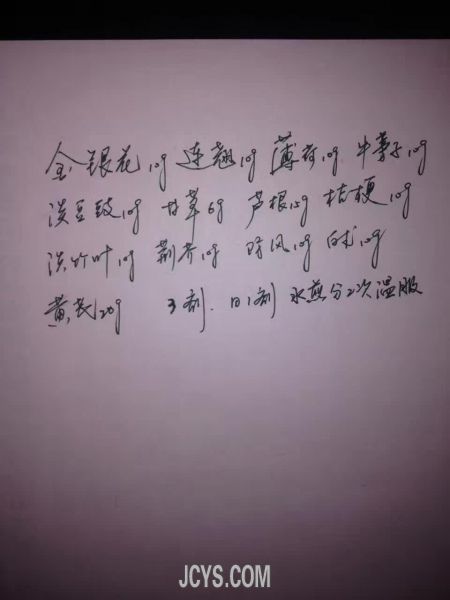 金银花10g 连翘10g 薄荷10g 牛蒡子10g
淡豆豉10g 甘草6g 芦根15g 桔梗10g
淡竹叶10g 荆芥10g 防风10g 白术10g
黄芪20g 3剂. 日1剂 水煎分2次温服
JCYS.COM